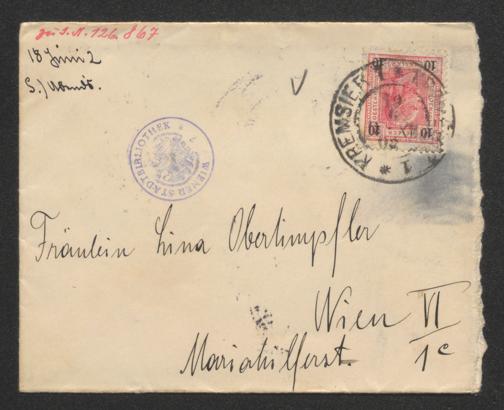 zu I.N. 126.867
18 Juni 2
S. / Abends.
WIENER STADTBIBLIOTHEK
KREMSIER
1
10 10
10 10
Fräulein Lina Obertimpfler
Wien VI
Mariahilferst. 1c